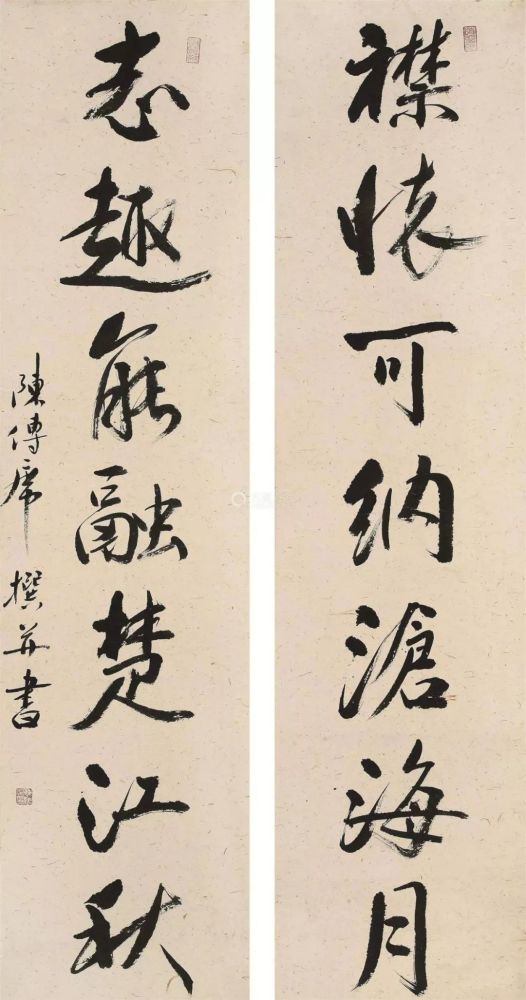 襟懷可納滄海月
志趣能融楚江秋
陳傳席撰并書